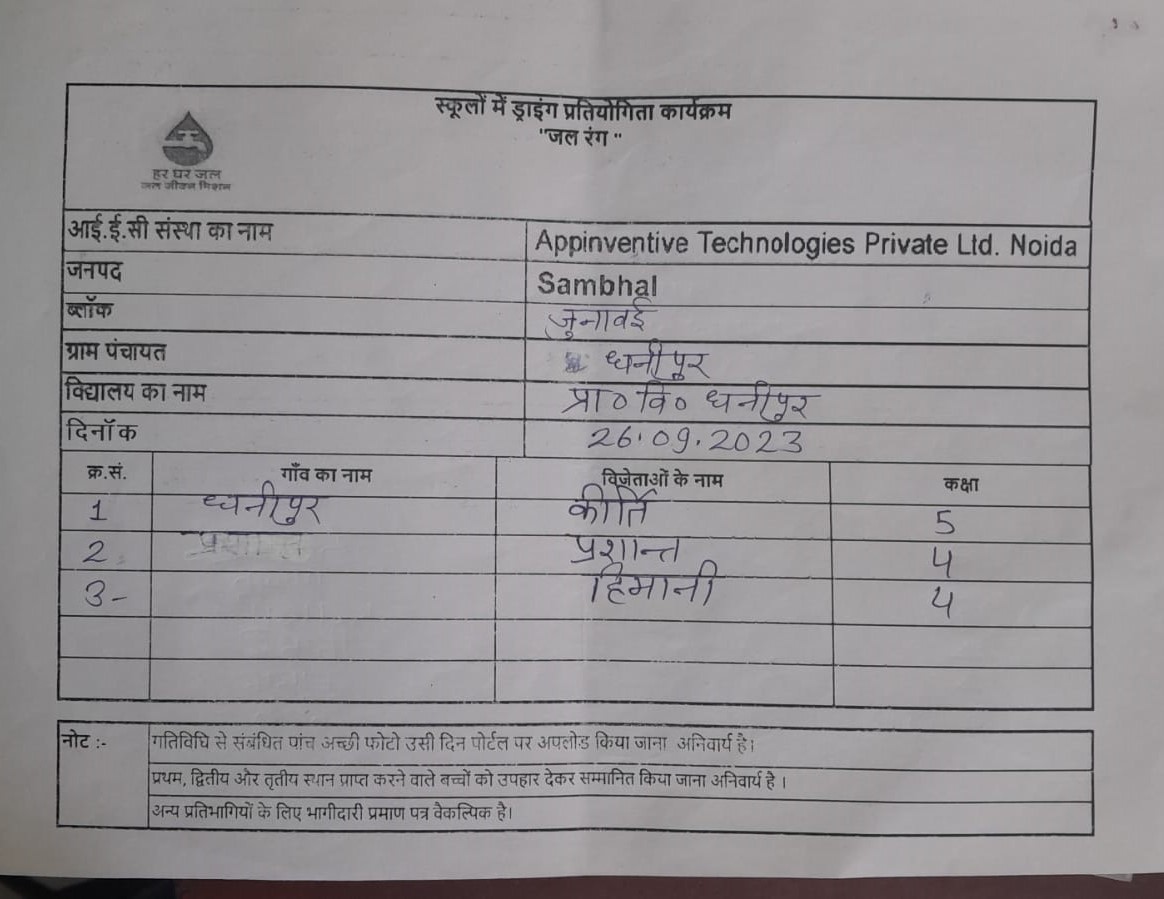 स्कूलों में ड्राइंग प्रतियोगिता कार्यक्रम
"जल रंग "
हर घर जल
जल जीवन मिशन
आई.ई.सी संस्था का नाम Appinventive Technologies Private Ltd. Noida
जनपद Sambhal
ब्लॉक जुनावई
ग्राम पंचायत धनीपुर
विद्यालय का नाम प्रा० वि० धनीपुर
दिनॉक 26.09.2023
क्र.सं. गाँव का नाम विजेताओं के नाम कक्षा
1 धनीपुर कीर्ति 5
2 प्रशान्त 4
3- हिमानी 4
नोट :- गतिविधि से संबंधित पांच अच्छी फोटो उसी दिन पोर्टल पर अपलोड किया जाना अनिवार्य है।
प्रथम, द्वितीय और तृतीय स्थान प्राप्त करने वाले बच्चों को उपहार देकर सम्मानित किया जाना अनिवार्य है ।
अन्य प्रतिभागियों के लिए भागीदारी प्रमाण पत्र वैकल्पिक है।